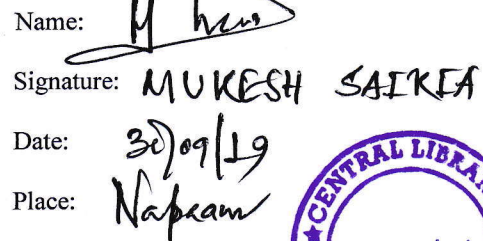 Name:
Signature: MUKESH SAIKIA
Date: 30/09/19
Place: Napaam
CENTRAL LIBRA